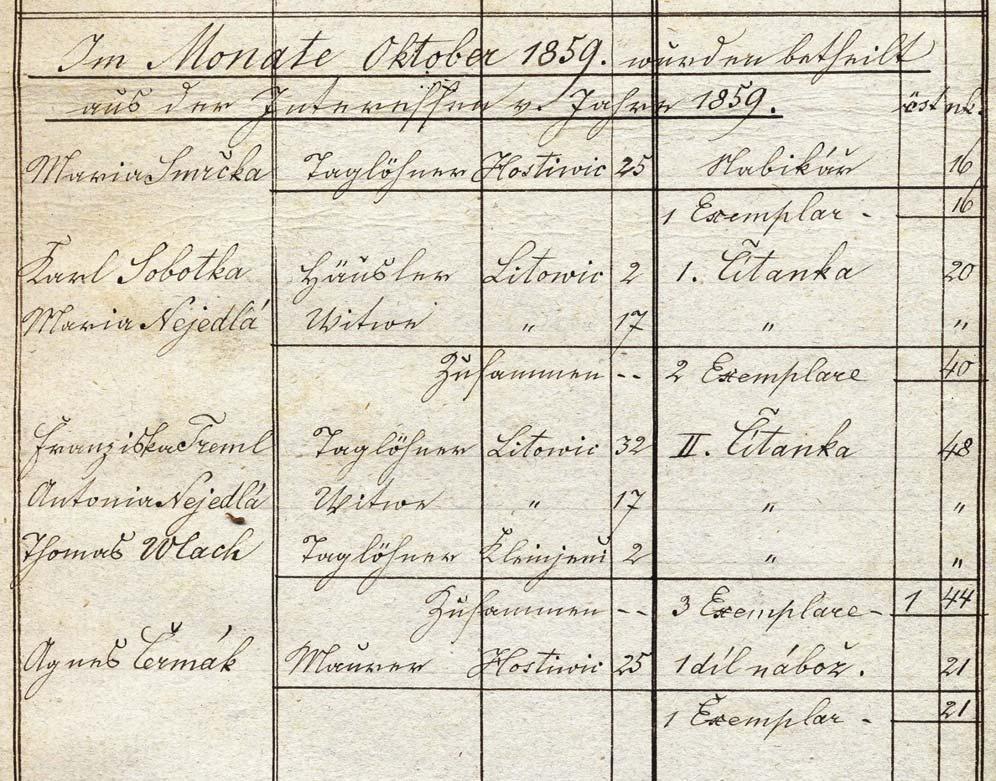 Im Monate Oktober 1859. wurden betheilt
aus der Interessen v. Jahre 1859. öst nk.
Maria Smrčka Taglöhner Hostiwic 25 Slabikář 16
1 Exemplar - 16
Karl Sobotka Häusler Litowic 2 1. Čítanka 20
Maria Nejedlá Witwe " 17 " "
Zusammen -- 2 Exemplare 40
Franziska Treml Taglöhner Litowic 32 II. Čítanka 48
Antonia Nejedlá Witwe " 17 " "
Thomas Wlach Taglöhner Kleinjenč 2 " "
Zusammen -- 3 Exemplare - 1 44
Agnes Čermák Maurer Hostiwic 25 1 díl nábož. 21
1 Exemplar - 21